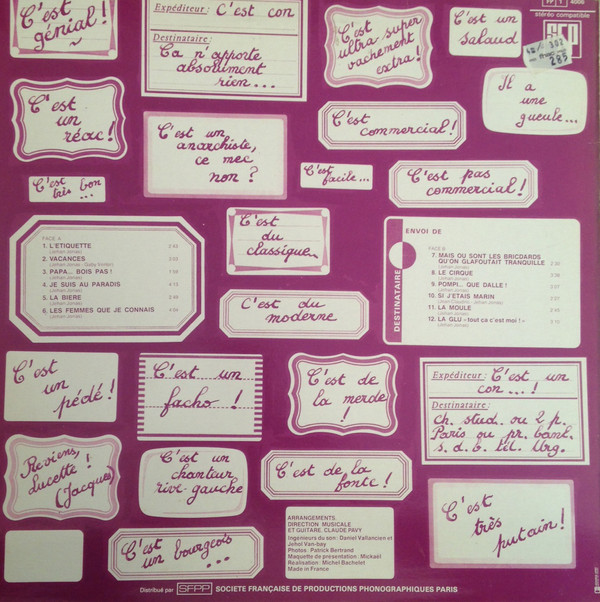 C'est
génial !
Expéditeur : C'est con
Destinataire :
Ca n'apporte
absolument
rien...
C'est
ultra super
vachement
extra !
C'est un
salaud
stéréo compatible
285
C'est
un
réac !
C'est un
anarchiste,
ce mec
non ?
C'est
commercial !
Il a
une
gueule...
C'est
très bon
...
C'est
facile...
C'est pas
commercial !
FACE A
1. L'ETIQUETTE 2'52
(Jehan Jonas)
2. VACANCES
(Jehan Jonas - Gaby Verlor)
3. PAPA... BOIS PAS !
(Jehan Jonas)
4. JE SUIS AU PARADIS
(Jehan Jonas)
5. LA BIERE
(Jehan Jonas)
6. LES FEMMES QUE JE CONNAIS
(Jehan Jonas)
C'est
du
classique...
C'est du
moderne
ENVOI DE
DESTINATAIRE
FACE B
7. MAIS OU SONT LES BRICDARDS
QU'ON GLAFOUTAIT TRANQUILLE
(Jehan Jonas)
8. LE CIRQUE
(Jehan Jonas)
9. POMPI... QUE DALLE !
(Jehan Jonas)
10. SI J'ETAIS MARIN
11. LA MOULE
(Jehan Jonas)
12. LA GLU « tout ca c'est moi ! »
(Jehan Jonas)
C'est
un
pédé !
C'est un
facho !
C'est de
la merde
!
Expéditeur : C'est un
con...!
Destinataire :
Ch. stud. ou 2 p.
Paris ou pr. banl.
s. d. b. tél. Urg.
Reviens,
Lucette !
(Jacques)
C'est un
chanteur
rive-gauche
C'est de la
fonte !
C'est
très
putain !
C'est
un bourgeois
...
ARRANGEMENTS,
DIRECTION MUSICALE
ET GUITARE, CLAUDE PAVY
Ingenieurs du son : Daniel Vallancien et
Jehol Van-bay
Photos : Patrick Bertrand
Maquette de présentation : Mickaël
Réalisation : Michel Bachelet
Made in France
Distribué par SFPP SOCIETE FRANÇAISE DE PRODUCTIONS PHONOGRAPHIQUES PARIS